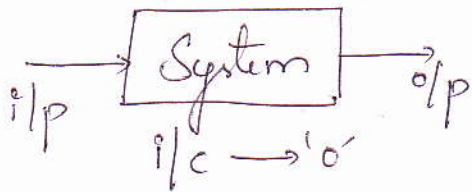 System
i/p
o/p
i/c → 'o'